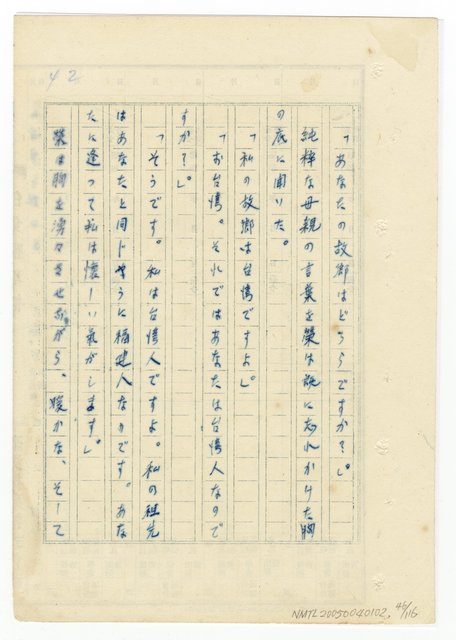 42
「あなたの故郷はどちらですか？」。
純粋な母親の言葉を榮は既に忘れかけた胸
の底に聞いた。
「私の故郷は台湾ですよ」。
「お台湾。それではあなたは台湾人なので
すか？」。
「そうです。私は台湾人ですよ。私の祖先
はあなたと同じやうに福建人なのです。あな
たに逢って私は懐しい氣がします」。
榮は胸を湧々させながら、暖かな、そして
NMTL20050040102, 46/116